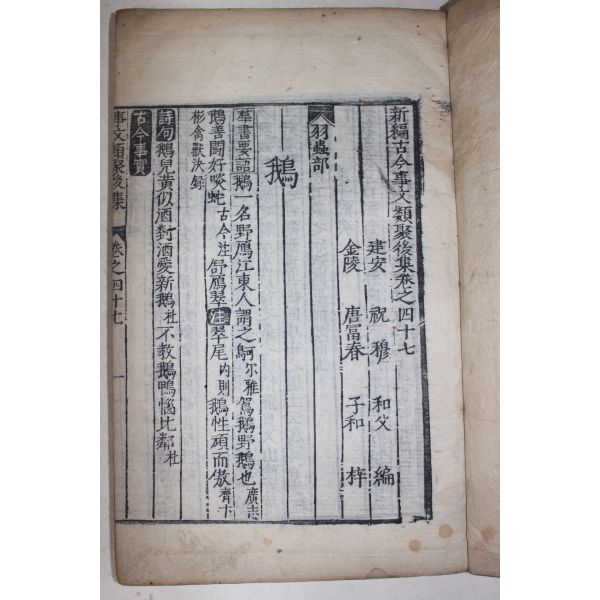 新編古今事文類聚後集卷之四十七
建安 祝穆 和父 編
金陵 唐冨春 子和 梓
羽蟲部
鵝
羣書要語鵝一名野鴈江東人謂之鴚尔雅鴐鵝野鵝也廣志
鵝善鬪好啖蛇古今注舒鴈翠注翠尾內則鵝性頑而傲齊卞
彬禽獸決録
詩句鵝兒黃似酒對酒愛新鵝杜不教鵝鴨惱比鄰杜
古今事實
事文類聚後集 卷之四十七 一